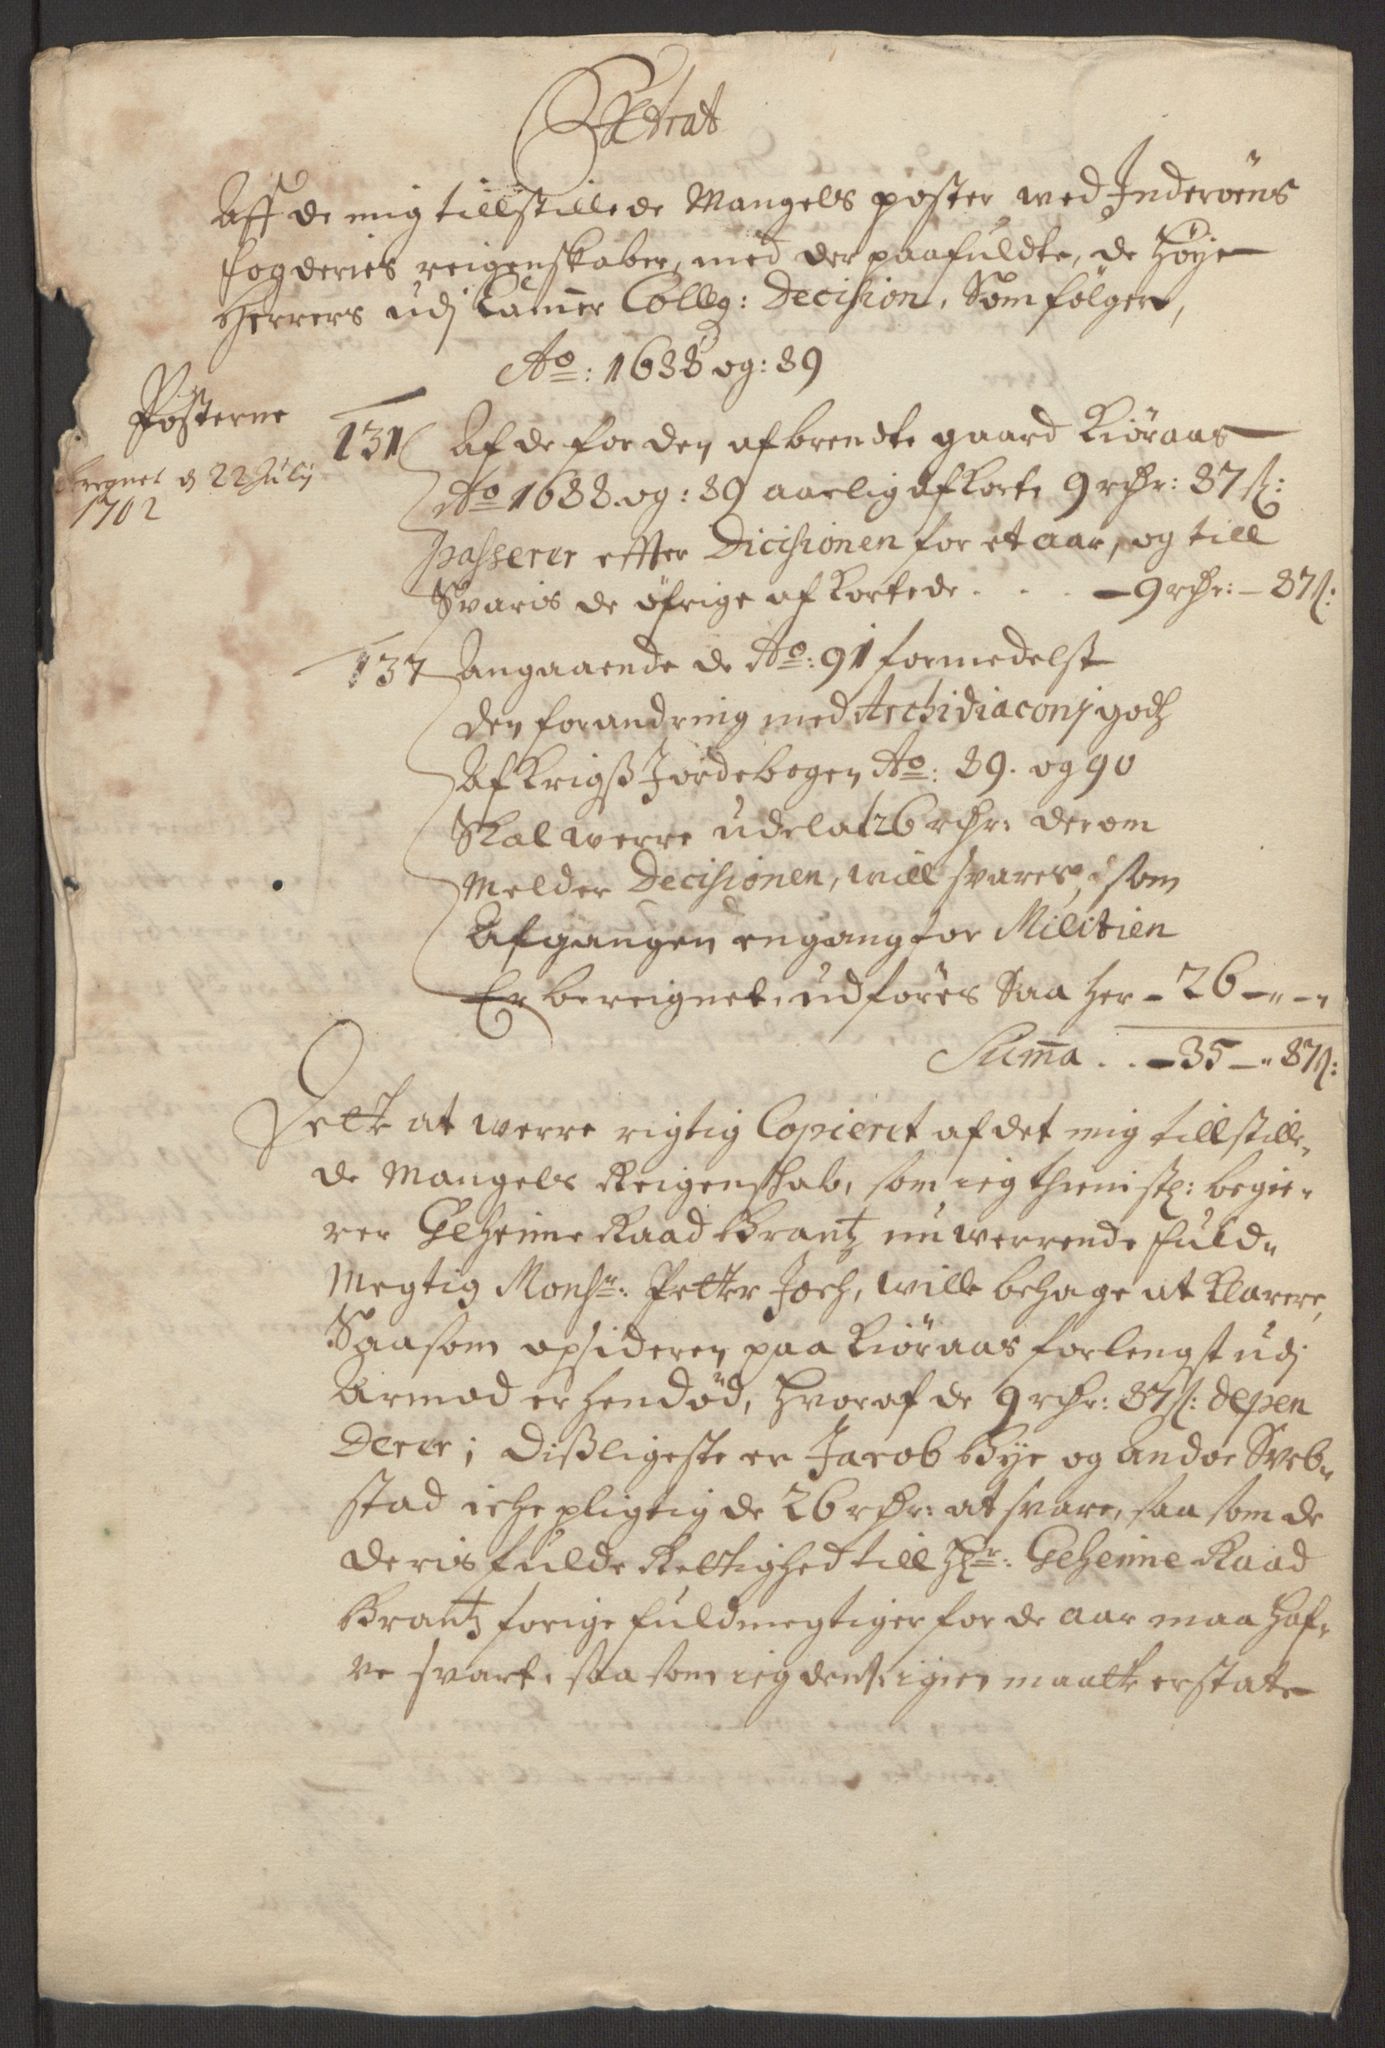 Extrat
Aff de mig tillstillede Mangels poster wed Inderøens
fogderies reigenskaber, med der paafuldte, de Høye
Herrers udj Camer Colleg: Decision, Som følger,
Ao: 1688 og: 89
Posterne
d 22 Julij
1702
131 Af de for den afbrendte gaard Kiøraas
Ao 1688 og: 89 aarlig afkorte 9 rdr: 87 s:
passerer effter Dicisionen for et aar, og till
Svaris de øfrige afkortede . . . – 9 rdr: – 87 s:
137 Angaaende de Ao: 91 formedelst
den forandring med Archidiaconj godz
Af Krigs Jordebogen Ao: 89. og 90
Skal werre udela 26 rdr: derom
Melder Decisionen, will svares, som
Afgangen engang for Militien
Er bereignet, udføres Saa her – 26 – " – "
Suma . . – 35 – " 87 s:
Dette at werre rigtig Copieret af det mig tillstille,,
de Mangels Reigenskab, som ieg thienistl: begie,,
rer Geheime Raad Brantz nu werrende fuld,,
Megtig Monsr: Petter Joch, wille behage at Klarere,
Saasom opsideren paa Kiøraas forlengst udj
Armod er hendød, hvoraf de 9 rdr: 87 s: depen
Derer; Disligeste er Jacob Bye og andre Sveb,,
stad iche pligtig de 26 rdr: at svare, saa som de
deris fulde Rettighed till Hr: Geheime Raad
Brantz forige fuldmegtiger for de aar maa haf,,
ve svart, saa som ieg dend igien maatte erstate